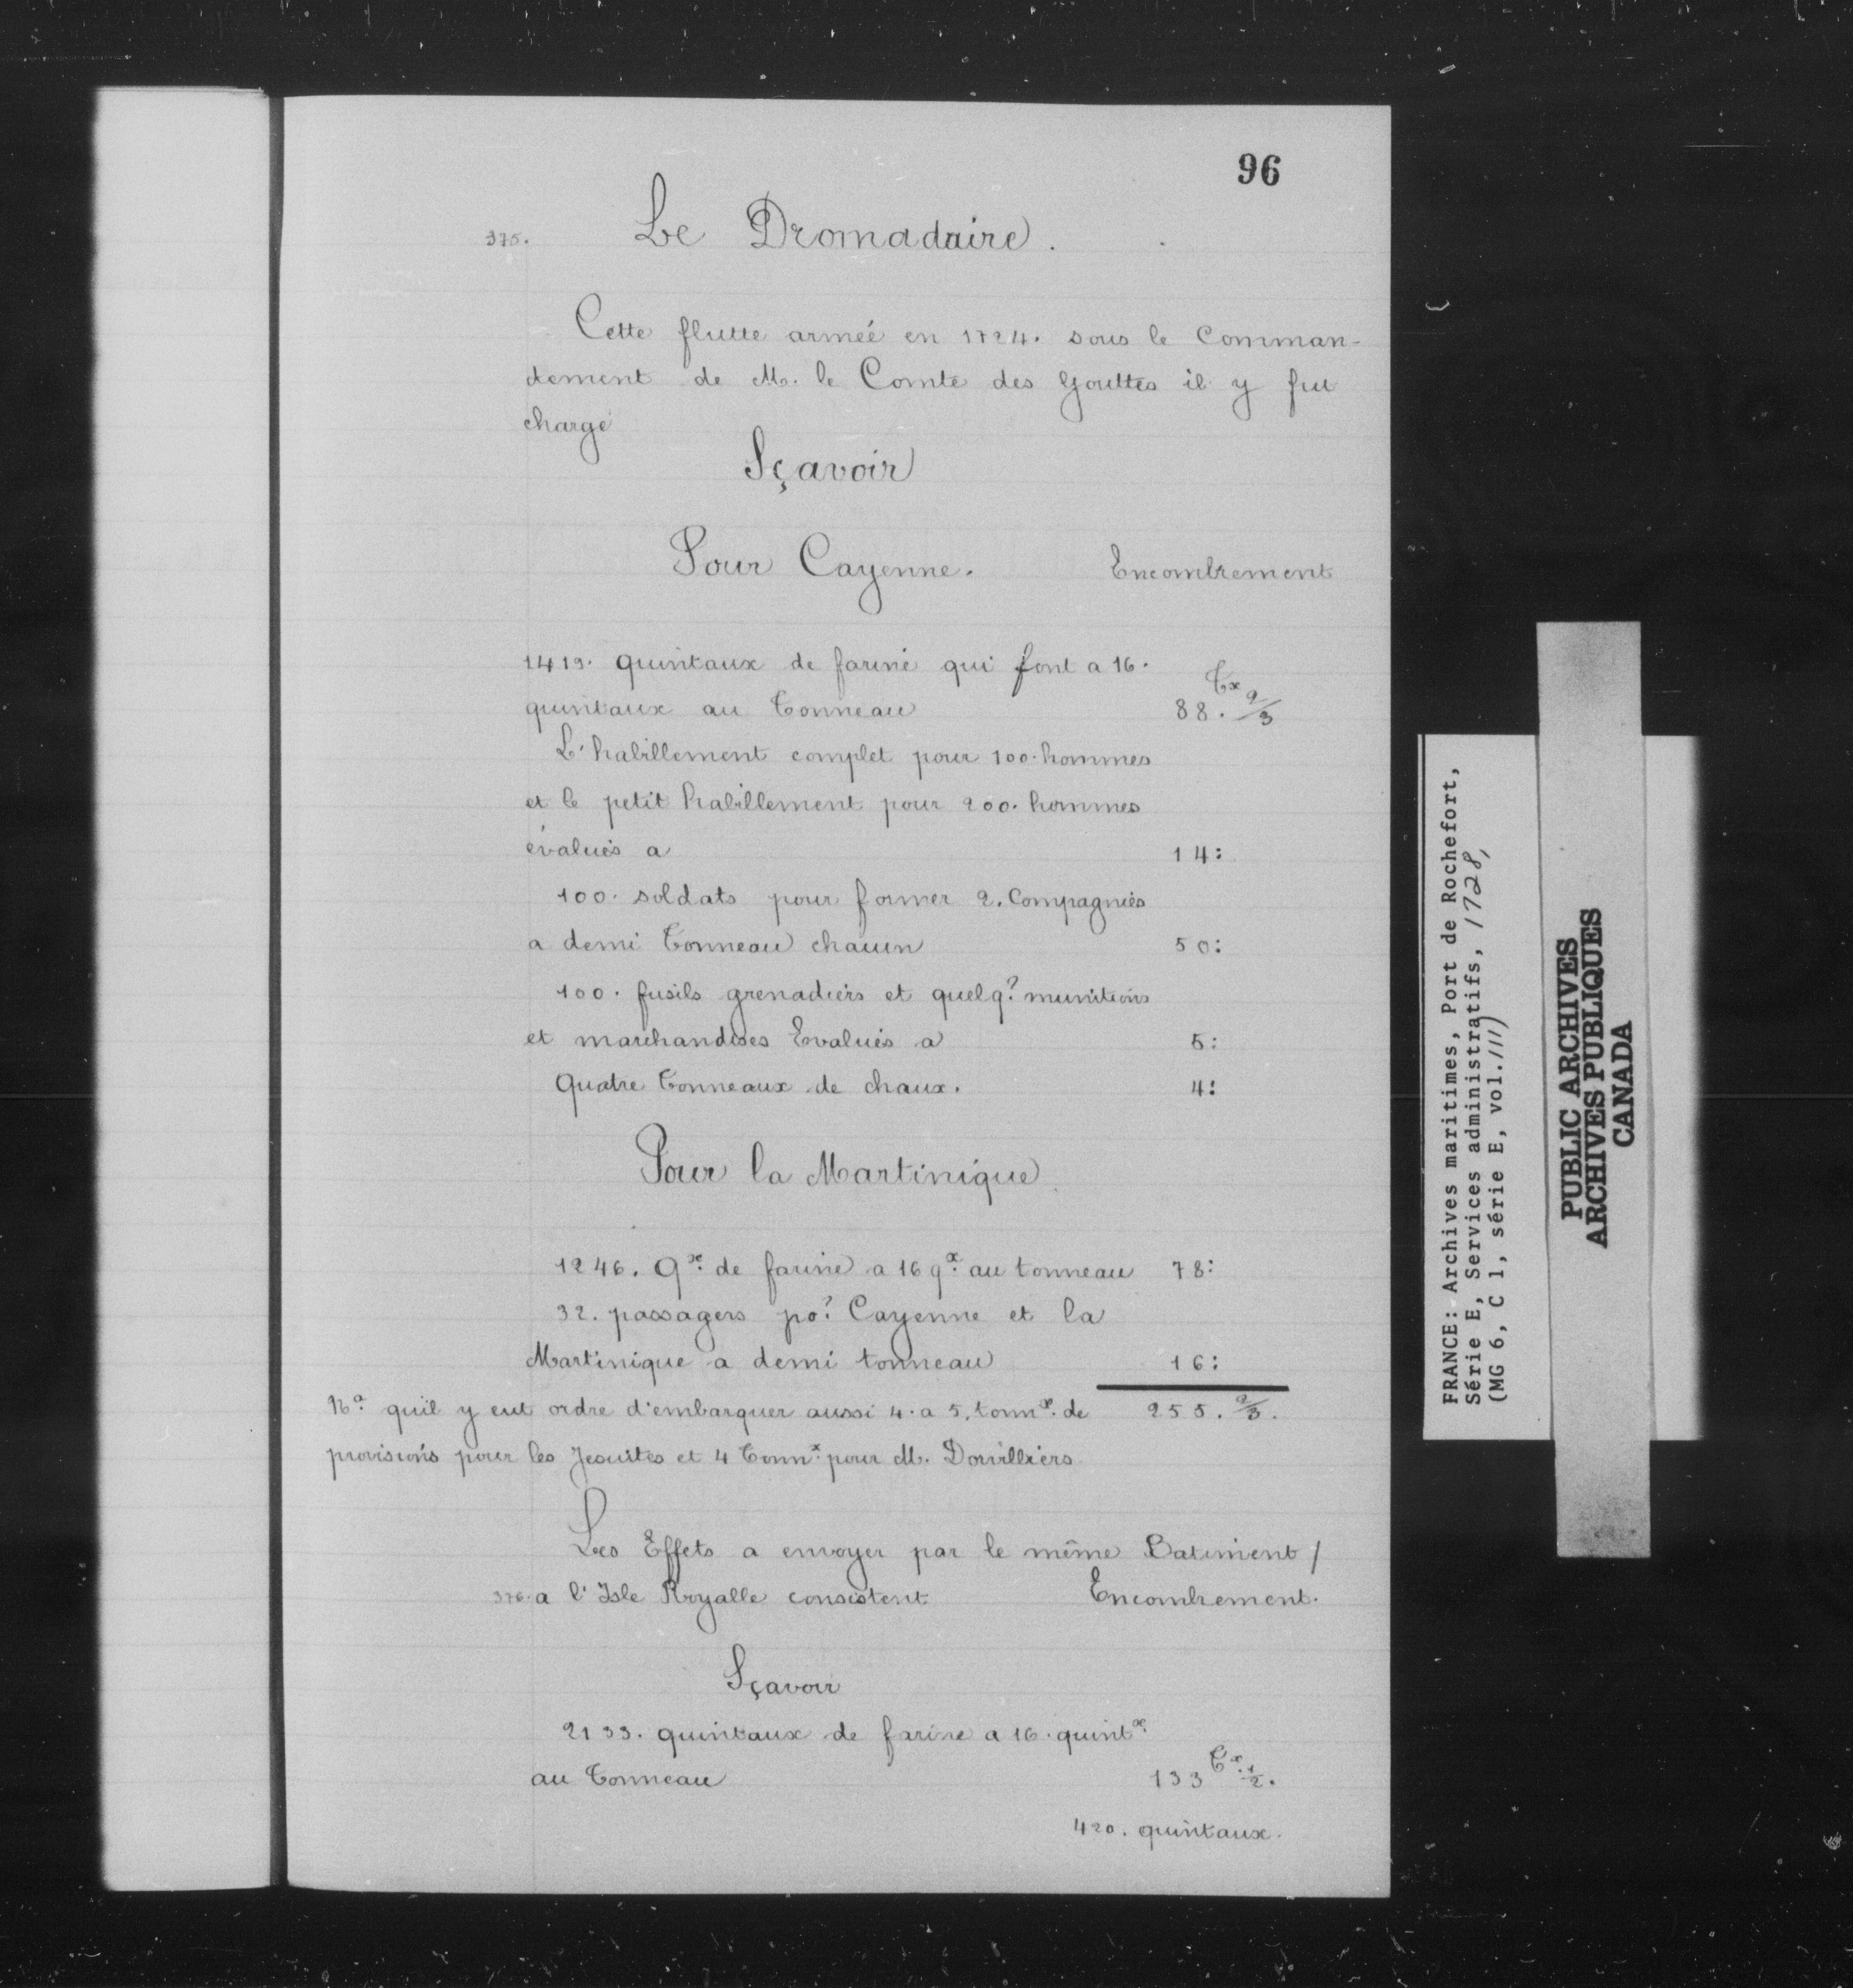 96
375. Le Dromadaire.
Cette flutte armeé en 1724. sous le Comman-
dement de M. le Comte des Gouttes il y fut
chargé
Sçavoir
Pour Cayenne. Encombrement
1419. quintaux de farine qui font a 16.
quintaux au Tonneau 88. Tx 2/3
L'habillement complet pour 100. hommes
et le petit habillement pour 200. hommes
évalués a 14:
100. soldats pour former 2. Compagnies
a demi Tonneau chacun 50:
100. fusils grenadiers et quelq? munitions
et marchandises Evalués a 5:
Quatre Tonneaux de chaux. 4:
Pour la Martinique
1246. qx. de farine a 16 qx. au tonneau 78:
32. passagers po? Cayenne et la
Martinique a demi tonneau 16:
Na. quil y eut ordre d'embarquer aussi 4. a 5. tonnx. de 255. 2/3.
provisions pour les Jesuites et 4 Tonnx. pour M. Dorvilliers
Les Effets a envoyer par le même Batiment /
376. a l'Isle Royalle consistent Encombrement.
Sçavoir
2133. quintaux de farine a 16. quintx.
au Tonneau 133 Tx. 1/2.
420. quintaux.
FRANCE: Archives maritimes, Port de Rochefort,
Série E, Services administratifs, 1728,
(MG 6, C 1, série E, vol. 111)
PUBLIC ARCHIVES
ARCHIVES PUBLIQUES
CANADA